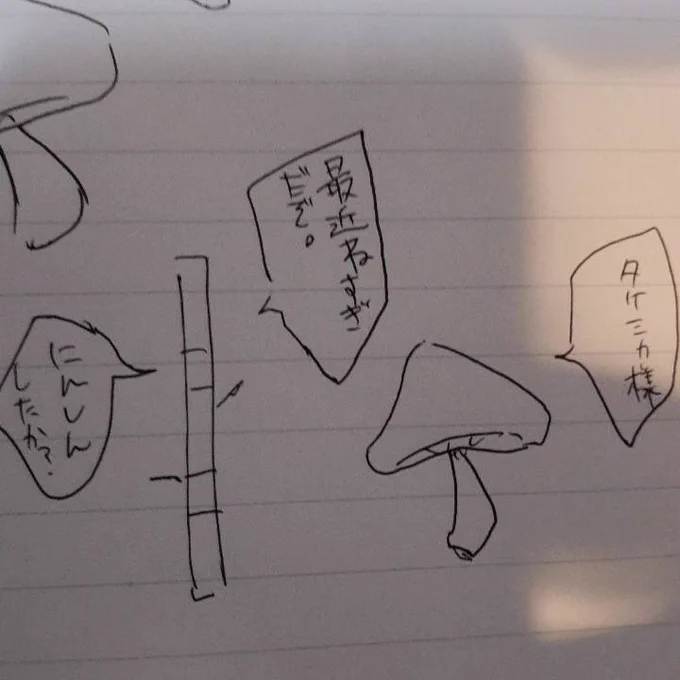 タケミカ様
最近ねすぎ
だぞ。
にんしん
したか？